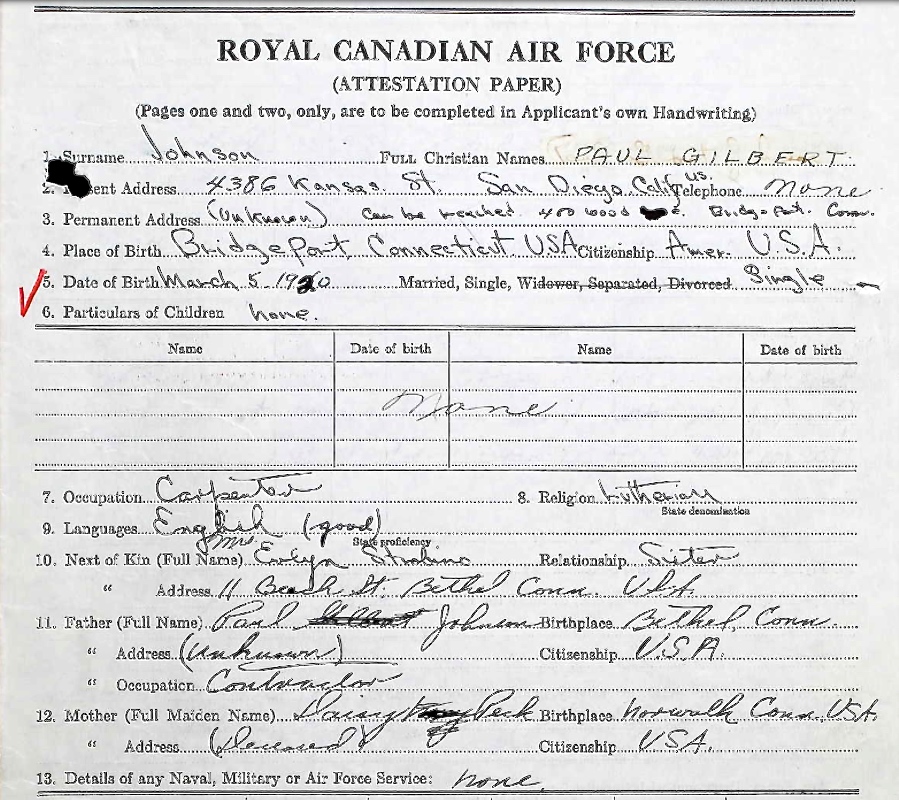 ROYAL CANADIAN AIR FORCE
(ATTESTATION PAPER)
(Pages one and two, only, are to be completed in Applicant's own Handwriting)
1. Surname Johnson FULL Christian Names PAUL GILBERT
2. Present Address 4386 Kansas St. San Diego Calif US. Telephone none
3. Permanent Address (Unknown) Can be reached 400 Wood Bridgeport. Conn.
4. Place of Birth Bridgeport Connecticut USA Citizenship Amer. U.S.A.
5. Date of Birth March 5 1920 Married, Single, Widower, Separated, Divorced Single
6. Particulars of Children none.
Name Date of birth Name Date of birth
None
7. Occupation Carpenter 8. Religion Lutherian
State denomination
9. Languages English (good)
State proficiency
10. Next of Kin (Full Name) Mrs Evlyn Relationship Sister
" Address 11 Beach St. Bethel Conn. USA.
11. Father (Full Name) Paul Johnson Birthplace Bethel, Conn.
" Address (Unknown) Citizenship U.S.A.
" Occupation Contractor
12. Mother (Full Maiden Name) Daisy Peck Birthplace Norwalk Conn, USA
" Address (Deceased) Citizenship USA.
13. Details of any Naval, Military or Air Force Service: none.